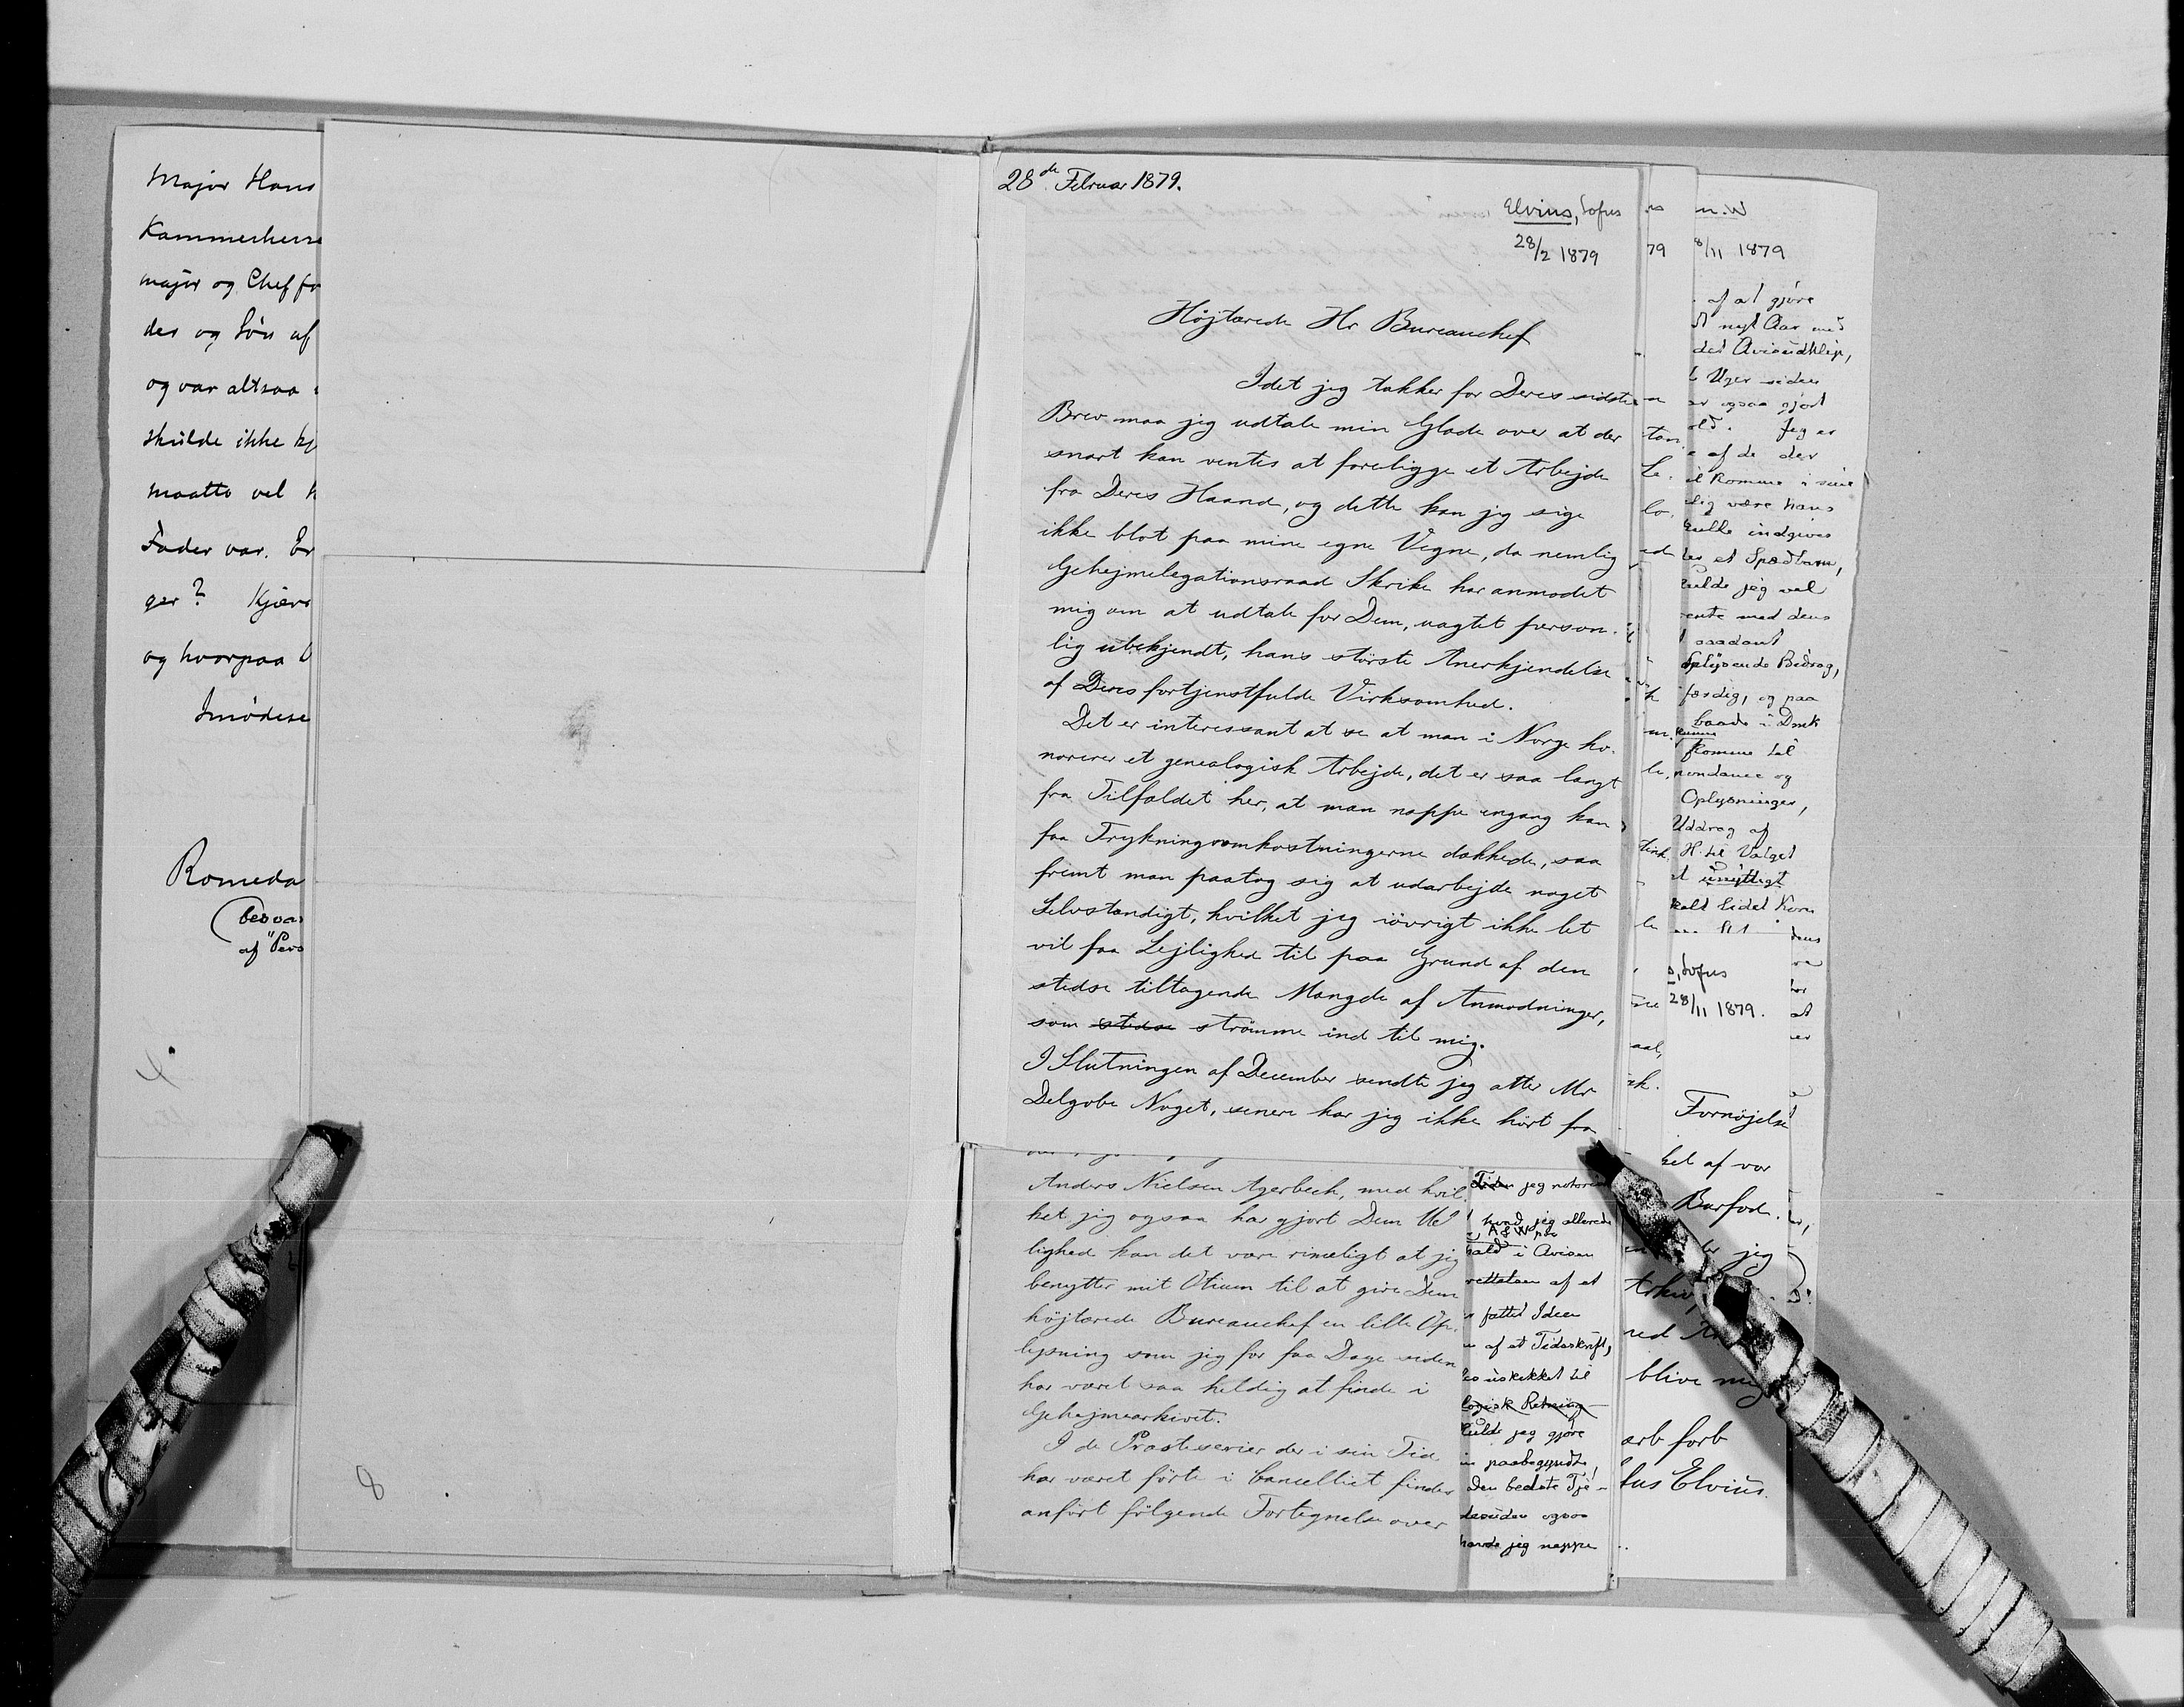 Major Hans
Kammerherre
major og Chef fo
des og Sön af
og var altsaa
skulde ikke kj
maatte vel
Fader var. Er
ger? Kjær
og hvorpaa
Imödese
Romeda
(besvar
af "Pers
8
28de Februar 1879.
Elvius, Sofus
28/2 1879
Højtærede Hr Bureauchef
Idet jeg takker for Deres sidste
Brev maa jeg udtale min Glæde over at der
snart kan ventes at foreligge et Arbejde
fra Deres Haand, og dette kan jeg sige
ikke blot paa mine egne Vegne, da nemlig
Gehejmelegationsraad Skrike har anmodet
mig om at udtale for Dem, uagtet person-
lig ubekjendt, hans störste Anerkjendelse
af Deres fortjenstfulde Virksomhed.
Det er interessant at se at man i Norge ho-
norerer et genealogisk Arbejde, det er saa langt
fra Tilfældet her, at man næppe engang kan
faa Trykningsomkostningerne dækkede, saa
fremt man paatog sig at udarbejde noget
Selvstændigt, hvilket jeg iövrigt ikke let
vil faa Lejlighed til paa Grund af den
stedse tiltagende Mængde af Anmodninger,
som stedse strömme ind til mig.
I Slutningen af December sendte jeg atter Mr
Delgobe Noget, senere har jeg ikke hört fra
Anders Nielsen Agerbech, med hvil
ket jeg ogsaa har gjort Dem Ule
lighed kan det være rimeligt at jeg
benytter mit Otium til at give Dem
højtærede Bureauchef en lille Op-
lysning som jeg for faa Dage siden
har været saa heldig at finde i
Gehejmearkivet.
I de Præsteserier der i sin Tid
har været förte i Cancelliet findes
anfört fölgende Fortegnelse over
Tiden jeg notorisk
hvad jeg allerede
hald i Avisen
rettelsen af et
fattet Ideen
af et Tidsskrift,
uskikket til
logisk Retning
kulde jeg gjöre
paabegyndte,
Den bedste Tje-
desuden ogsaa
havde jeg næppe
79
n. W
8/11 1879
af at gjöre
nyt Aar med
det Avisudklip,
Uger siden
ogsaa gjort
old. Jeg er
af de der
il komme i sine
lig være hans
kulle indgives
et Spædbarn,
kulde jeg vel
rente med dens
saadant
Oplysende Bidrag,
færdig, og paa
baade i Druk
kunne
komme til
pondance og
Oplysninger,
Uddrag af
H. til Valget
unyttigt
kalt Sidet Korn
s, Sofus
28/11 1879.
Fornöjelse
ket af vor
Barfod.
jeg
Arkiv,
blive mig
ærb forb
fus Elvius.